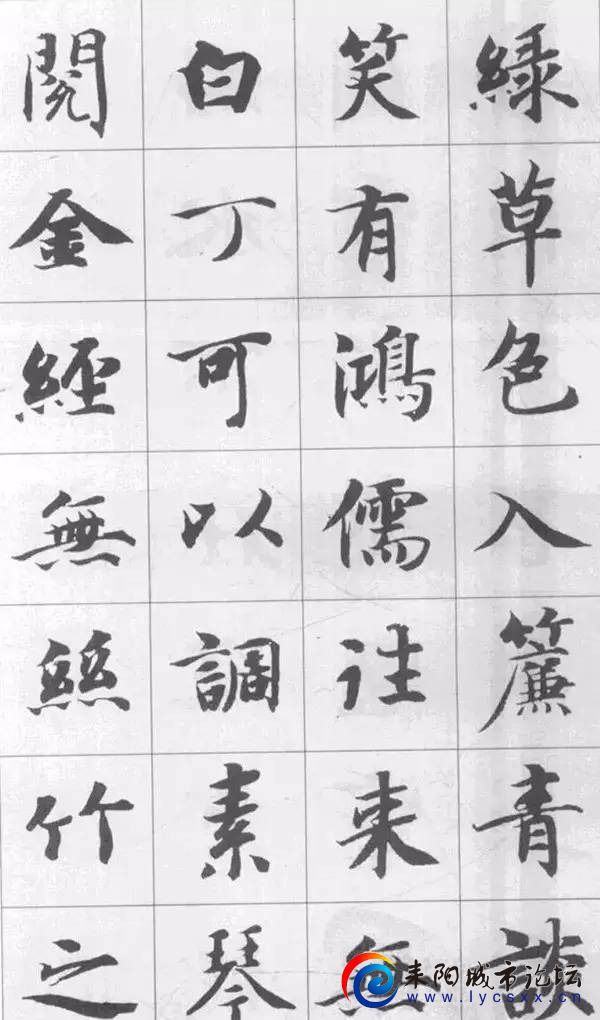 綠草色入簾青談
笑有鴻儒往来無
白丁可以調素琴
閱金經無絲竹之
耒阳城市论坛
www.lycsxx.cn